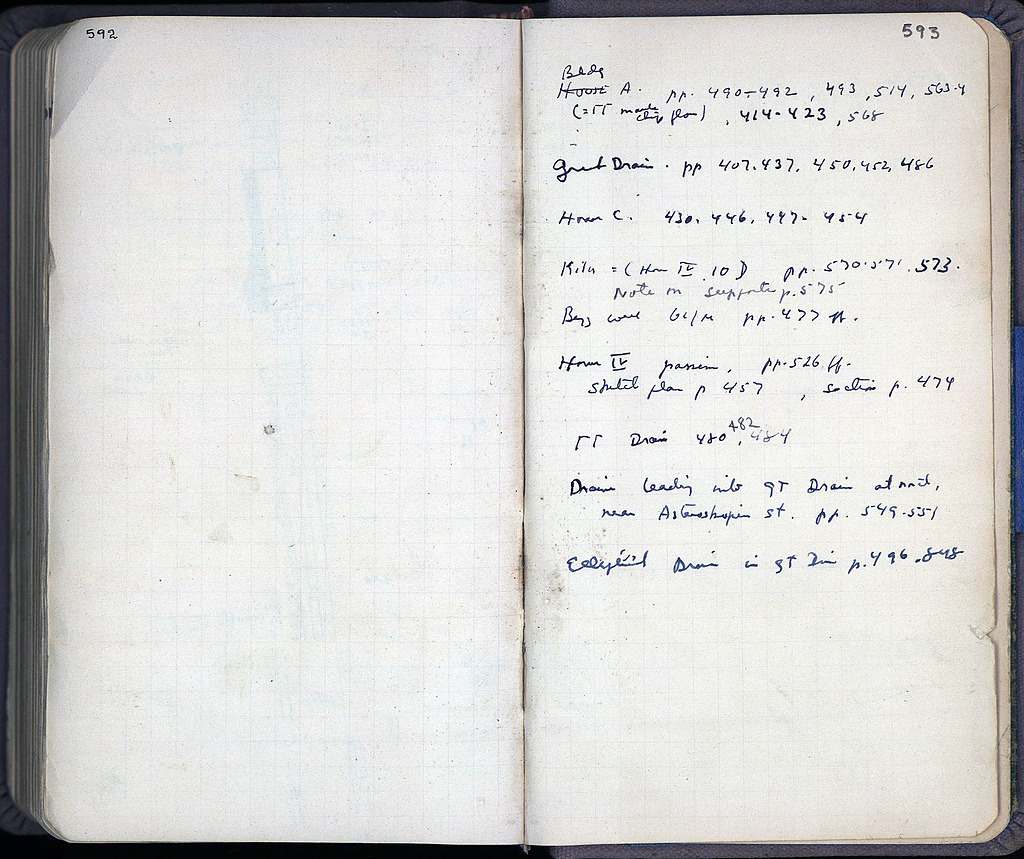 592
593
Bldg
House A. pp. 490-492, 493, 514, 563-4
(=TT marble chip floor), 414-423, 568
Great Drain. pp 407, 437, 450, 452, 486
House C. 430, 446, 447- 454
Kiln = (House IV 10) pp. 570-571, 573.
Note on supports p. 575
pp. 477 ff.
House IV passim, pp. 526 ff.
Sketch plan p 457, section p. 474
TT Drain 480, 482, 484
Drain leading into gt Drain at north,
near Asteroskopeion St. pp. 549-551
Drain in gt Drain p. 496